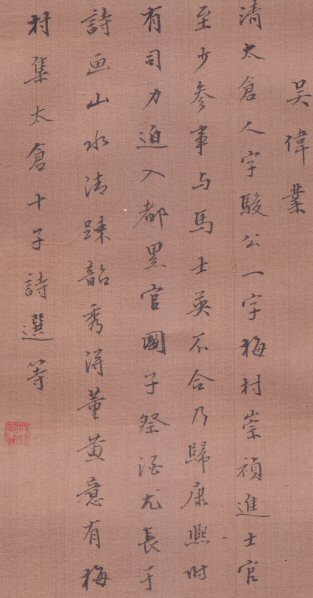 吴偉業
清太倉人字駿公一字梅村崇禎進士官
至少參事与馬士英不合乃歸康熙时
有司力迫入都累官國子祭酒尤長于
詩画山水清疎韶秀得董黄意有梅
村集太倉十子詩選等